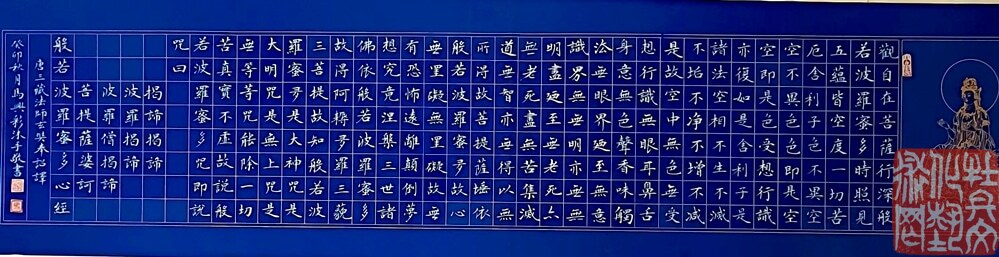 觀自在菩薩行深般
若波羅蜜多時照見
五蘊皆空度一切苦
厄舍利子色不異空
空不異色色即是空
空即是色受想行識
亦復如是舍利子是
諸法空相不生不滅
不垢不淨不增不減
是故空中無色無受
想行識無眼耳鼻舌
身意無色聲香味觸
法無眼界乃至無意
識界無無明亦無無
明盡乃至無老死亦
無老死盡無苦集滅
道無智亦無得以無
所得故菩提薩埵依
般若波羅蜜多故心
無罣礙無罣礙故無
有恐怖遠離顛倒夢
想究竟涅槃三世諸
佛依般若波羅蜜多
故得阿耨多羅三藐
三菩提故知般若波
羅蜜多是大神咒是
大明咒是無上咒是
無等等咒能除一切
苦真實不虛故說般
若波羅蜜多咒即說
咒曰
揭諦揭諦
波羅揭諦
波羅僧揭諦
菩提薩婆訶
般若波羅蜜多心經
唐三藏法師玄奘奉詔譯
癸卯秋月馬興彩沐手敬書